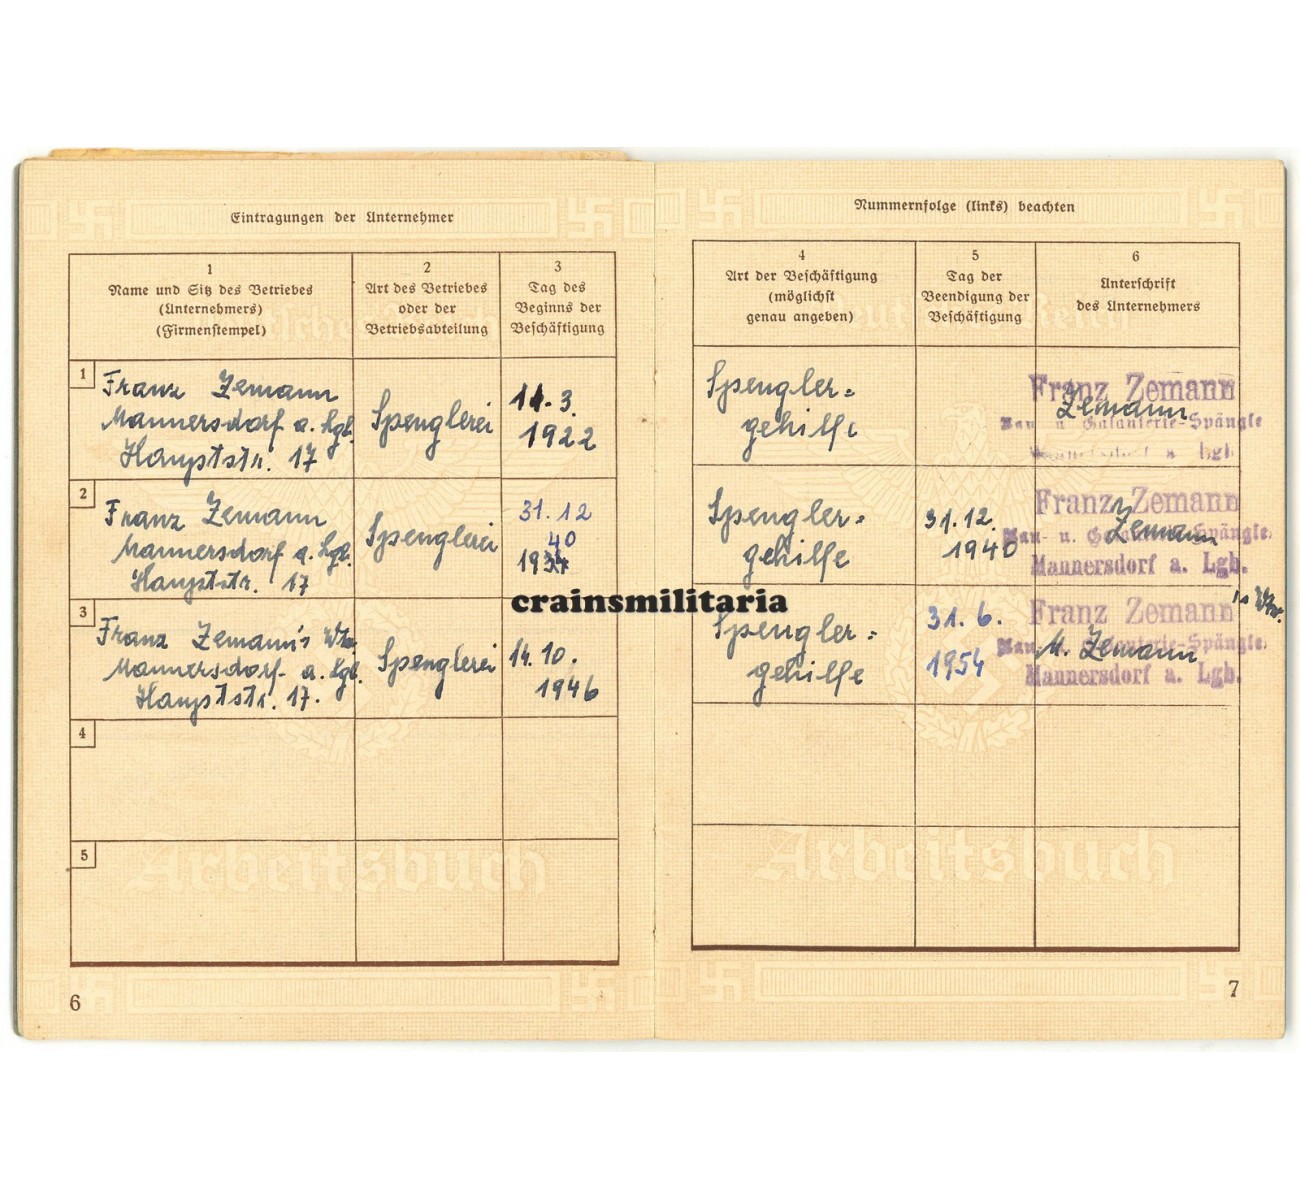 Eintragungen der Unternehmer
1
Name und Sitz des Betriebes
(Unternehmers)
(Firmenstempel)
2
Art des Betriebes
oder der
Betriebsabteilung
3
Tag des
Beginns der
Beschäftigung
1
Franz Zemann
Mannersdorf a. Lgb.
Hauptstr. 17
Spenglerei
3.
1922
2
Franz Zemann
Mannersdorf a. Lgb.
Hauptstr. 17
Spenglerei
31. 12
40
3
Franz Zemann's Wtw.
Mannersdorf a. Lgb.
Hauptstr. 17.
Spenglerei
14. 10.
1946
4
5
Arbeitsbuch
6
Nummernfolge (links) beachten
4
Art der Beschäftigung
(möglichst
genau angeben)
5
Tag der
Beendigung der
Beschäftigung
6
Unterschrift
des Unternehmers
Spengler=
gehilfe
Franz Zemann
Zemann
Bau- u. Galanterie-Spängle
Mannersdorf a. Lgb.
Spengler=
gehilfe
31. 12.
1940
Franz Zemann
Zemann
Bau- u. Galanterie-Spängle
Mannersdorf a. Lgb.
Spengler=
gehilfe
31. 6.
1954
Franz Zemann
Wtw.
Bau- u. Galanterie-Spängle
M. Zemann
Mannersdorf a. Lgb.
Arbeitsbuch
7
crainsmilitaria